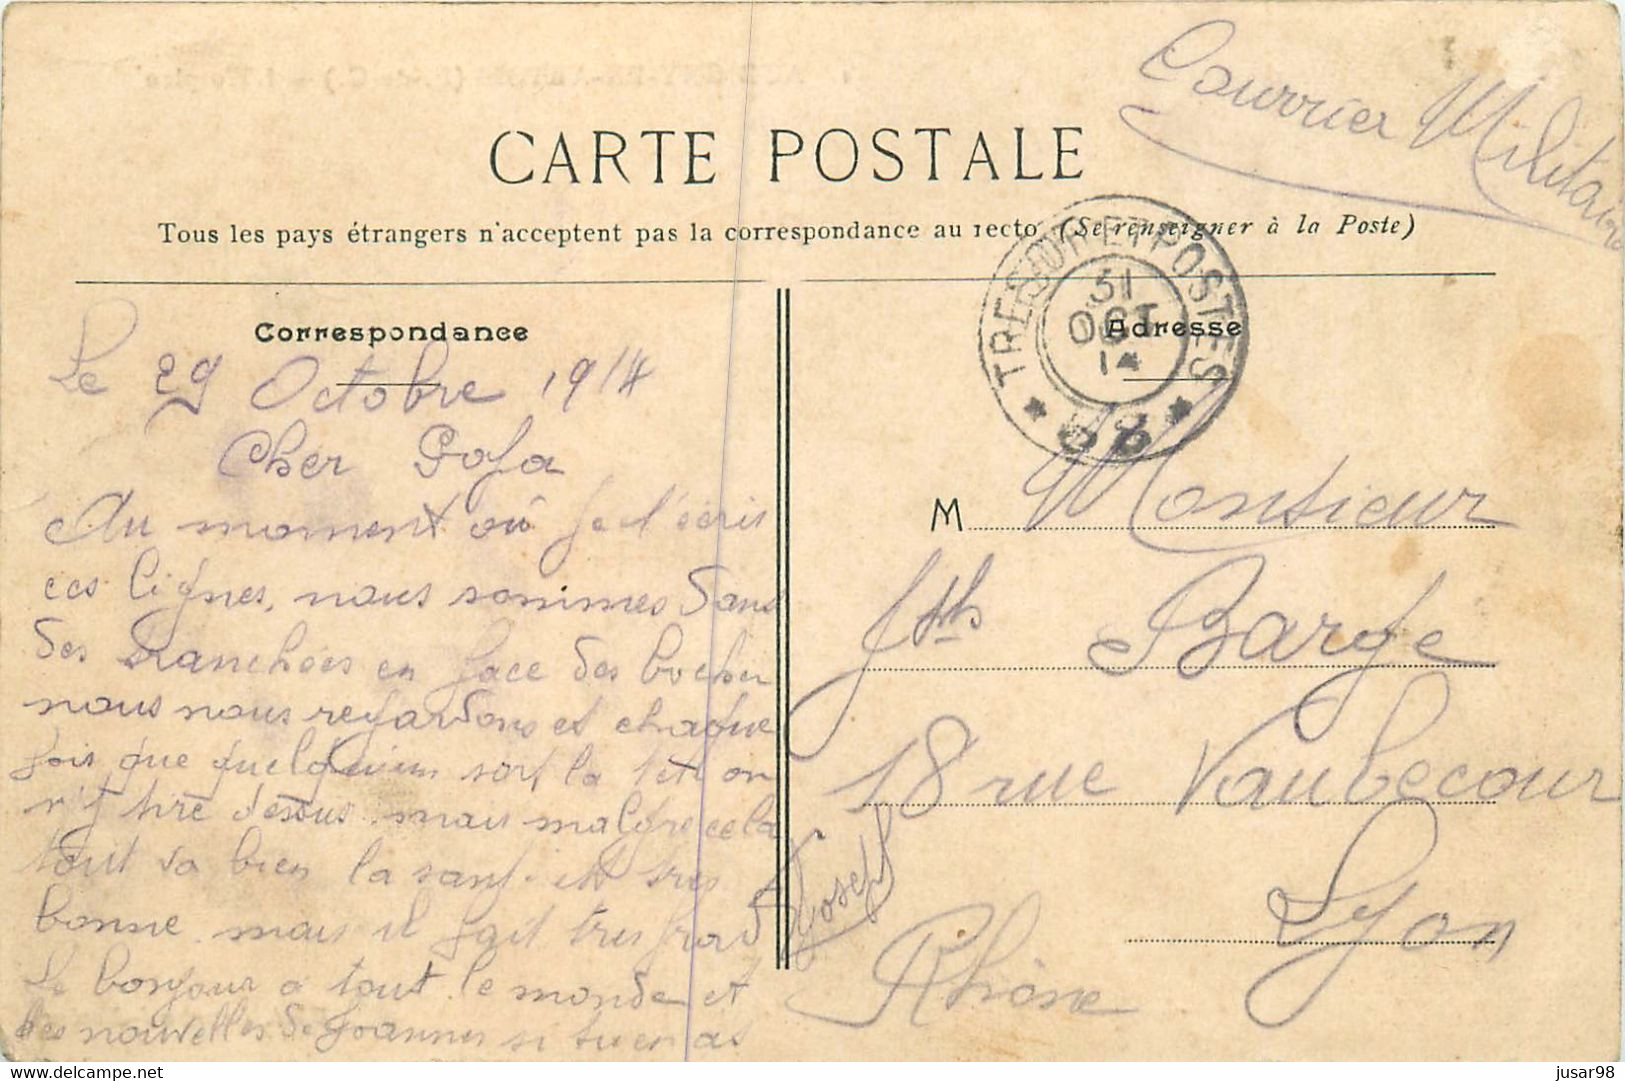 Courrier Militaire
CARTE POSTALE
Tous les pays étrangers n'acceptent pas la correspondance au recto (Se renseigner à la Poste)
TRESOR ET POSTES
31
OCT
14
Correspondance
Adresse
Le 29 Octobre 1914
Cher
Au moment où je t'écris
ces lignes, nous sommes dans
des tranchées en face des boches
nous nous regardons et chaque
fois que quelqu'un sort la tete on
n't tire dessus. mais malgre cela
tout va bien la sant. est tres
bonne. mais il fait tres froid
Le bonjour a tout le monde et
des nouvelles de Joannes si tu en as
Joseph
M Monsieur
Jsth Barge
18 rue Vaubecour
Lyon
Rhône
delcampe.net
jusar98